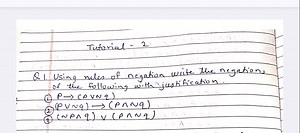 Tutorial - 2
Q1. Using rules of negation write the negations
of the following with justification.
① P → (P ∨ ~ q)
② (P ∨ ~ q) → (P ∧ ~ q)
③ (~ P ∧ q) ∨ (P ∧ ~ q)